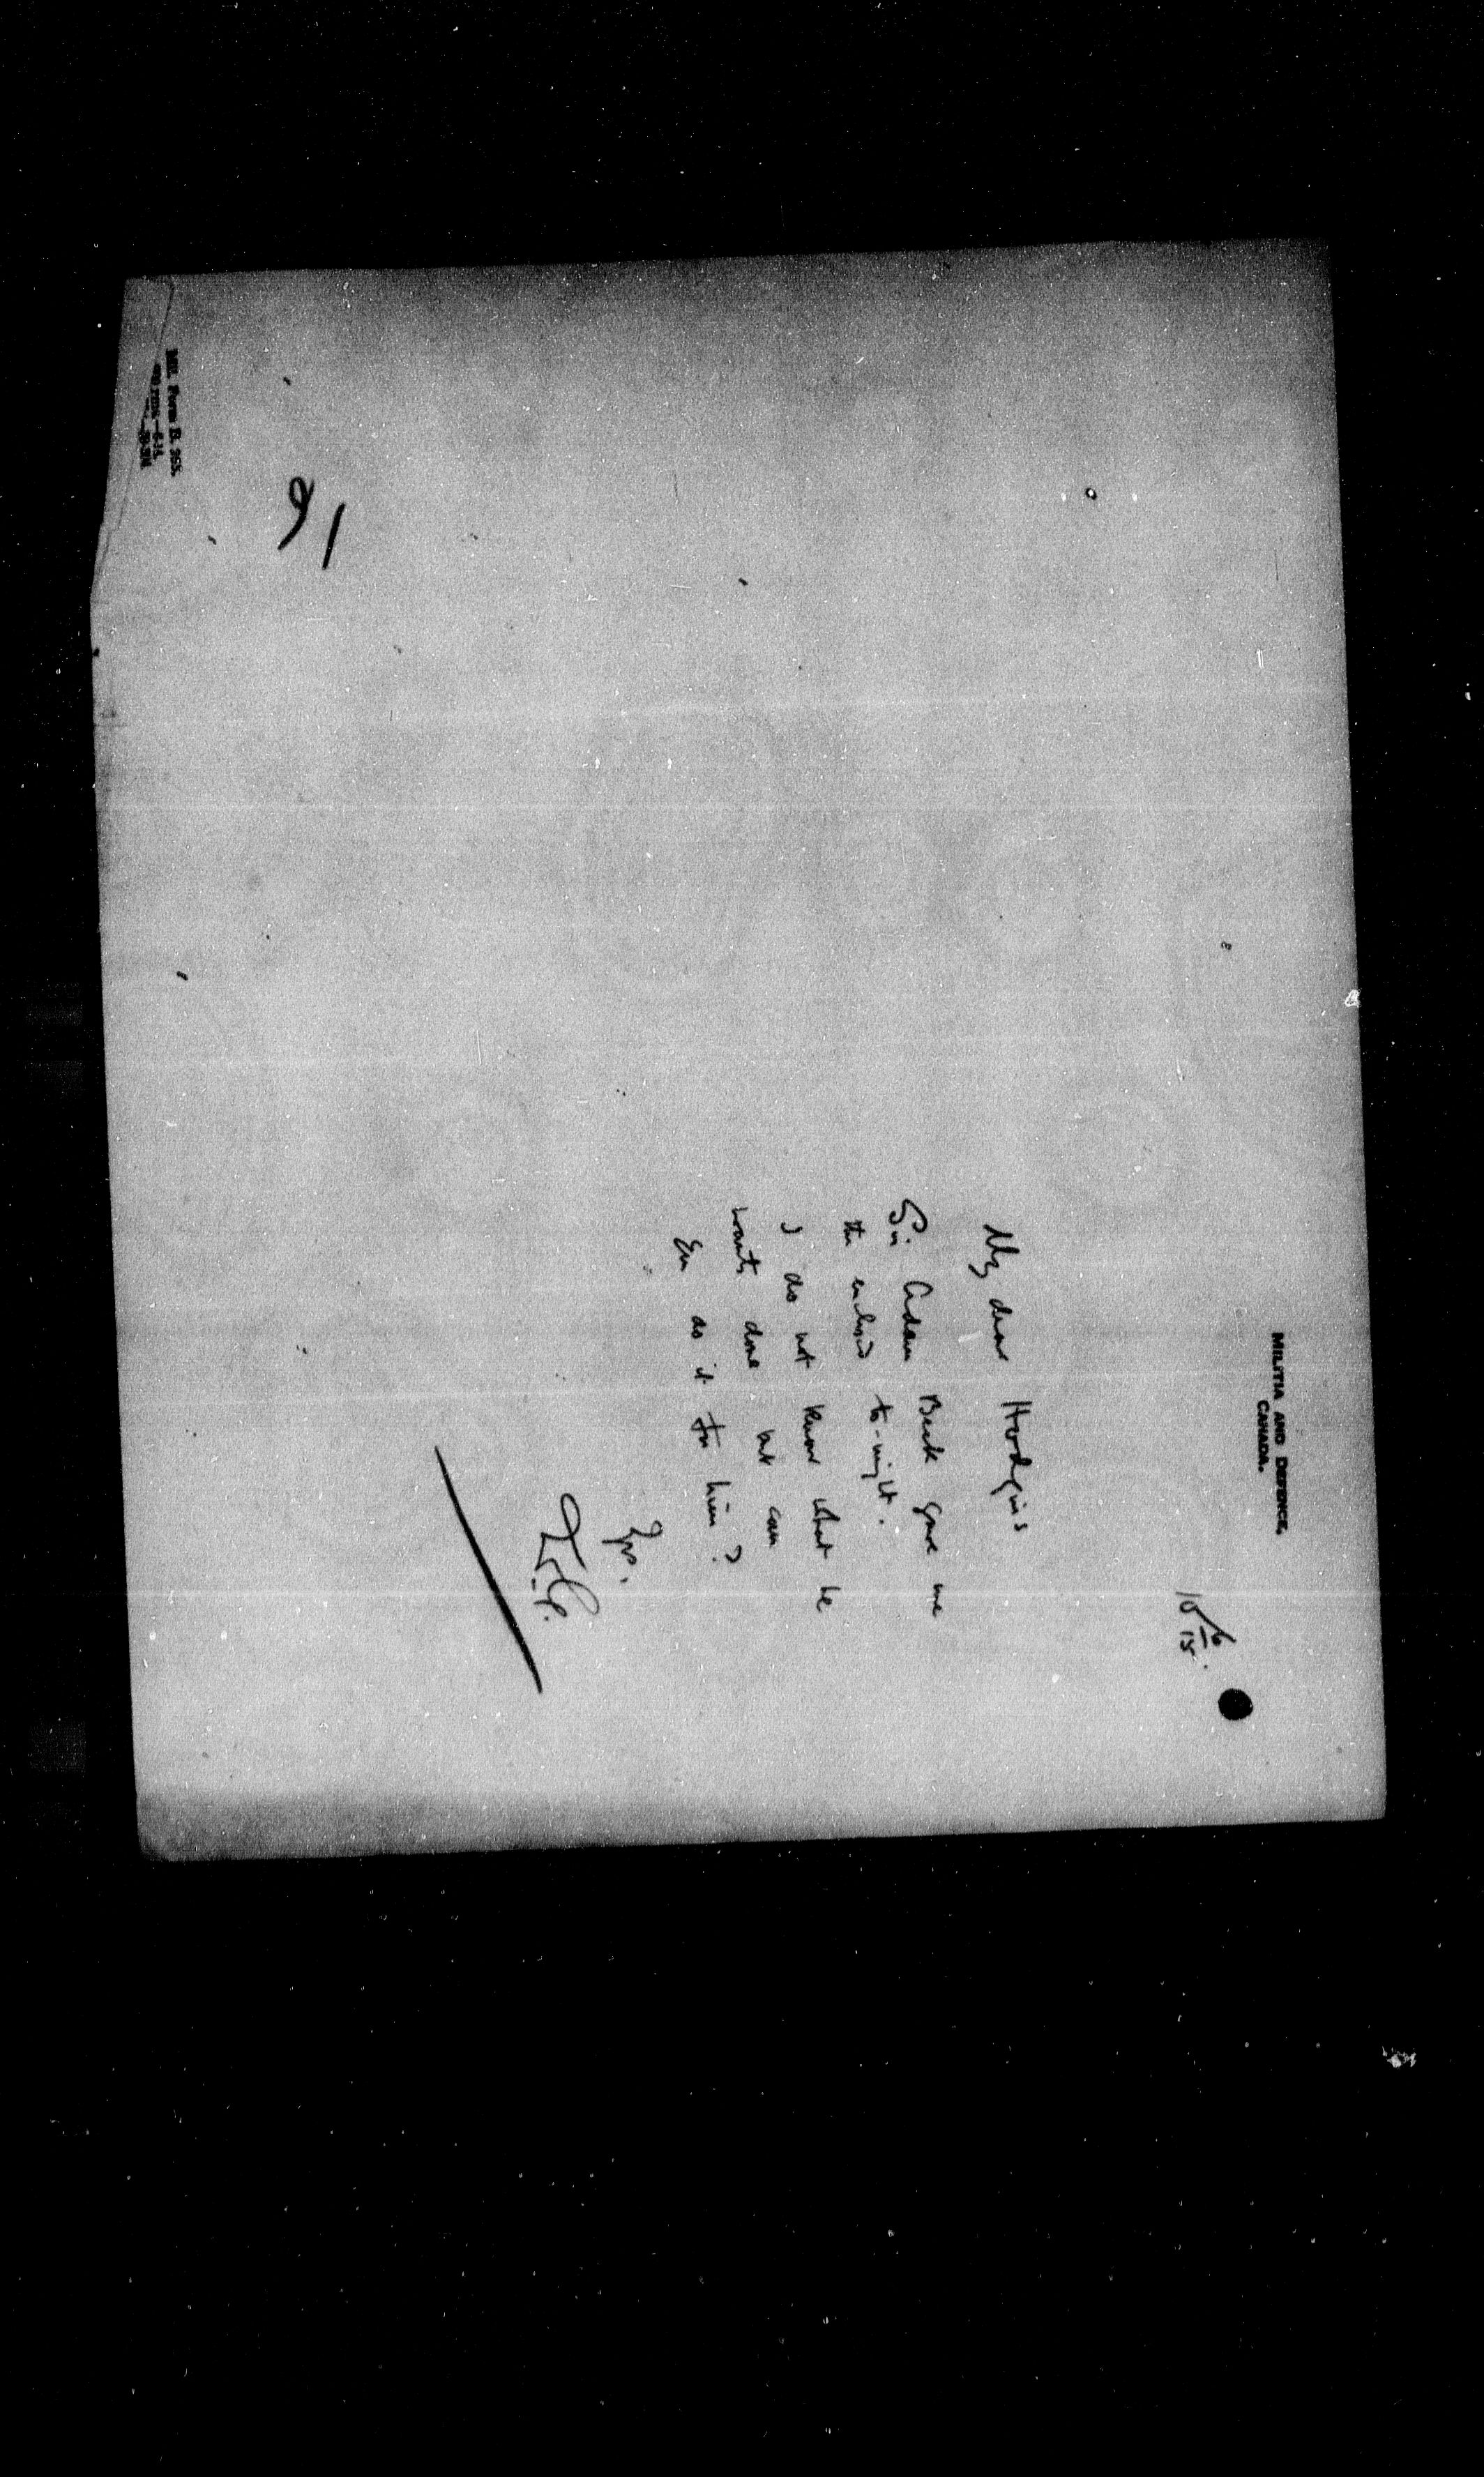 MIL. Form B. 265.
91
MILITIA AND DEFENCE,
CANADA.
10/6/15.
My dear Hodgins
Sir Adam Beck gave me
the enclosed to-night.
I do not know what he
wants done but can
you do it for him?
Yrs.